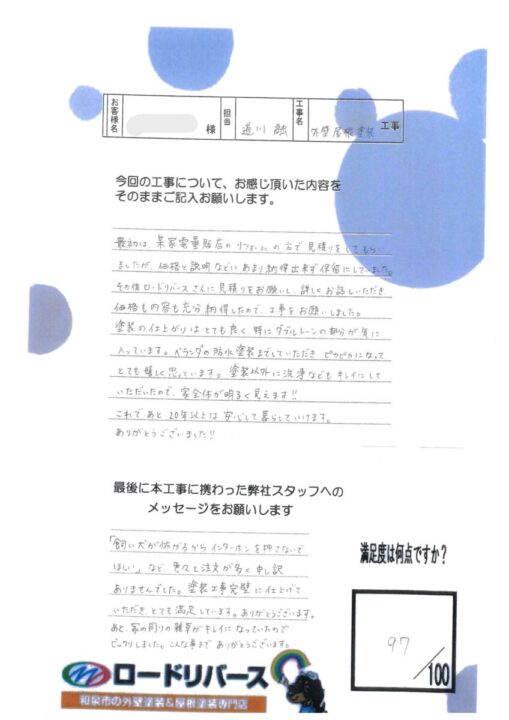 お客様名 様 担当 道川 融 工事名 外壁屋根塗装 工事
今回の工事について、お感じ頂いた内容を
そのままご記入お願いします。
最初は、某家電量販店のリフォームの方で見積りをしてもらい
ましたが、価格と説明などにあまり納得出来ず保留にしていました。
その後ロードリバースさんに見積りをお願いし、詳しくお話しいただき
価格も内容も充分納得したので、工事をお願いしました。
塗装の仕上がりはとても良く特にダブルトーンの部分が気に
入っています。ベランダの防水塗装までしていただきピカピカになって
とても嬉しく思っています。塗装以外に洗浄などもキレイにして
いただいたので、家全体が明るく見えます!!
これであと20年以上は安心して暮らしていけます。
ありがとうございました!!
最後に本工事に携わった弊社スタッフへの
メッセージをお願いします
「飼い犬が怖がるからインターホンを押さないで
ほしい」など、色々と注文が多く申し訳
ありませんでした。塗装工事完璧に仕上げて
いただきとても満足しています。ありがとうございます。
あと、家の周りの雑草がキレイになっていたので
ビックリしました。こんな事までありがとうございます。
満足度は何点ですか?
97
/100
ロードリバース
和泉市の外壁塗装&屋根塗装専門店